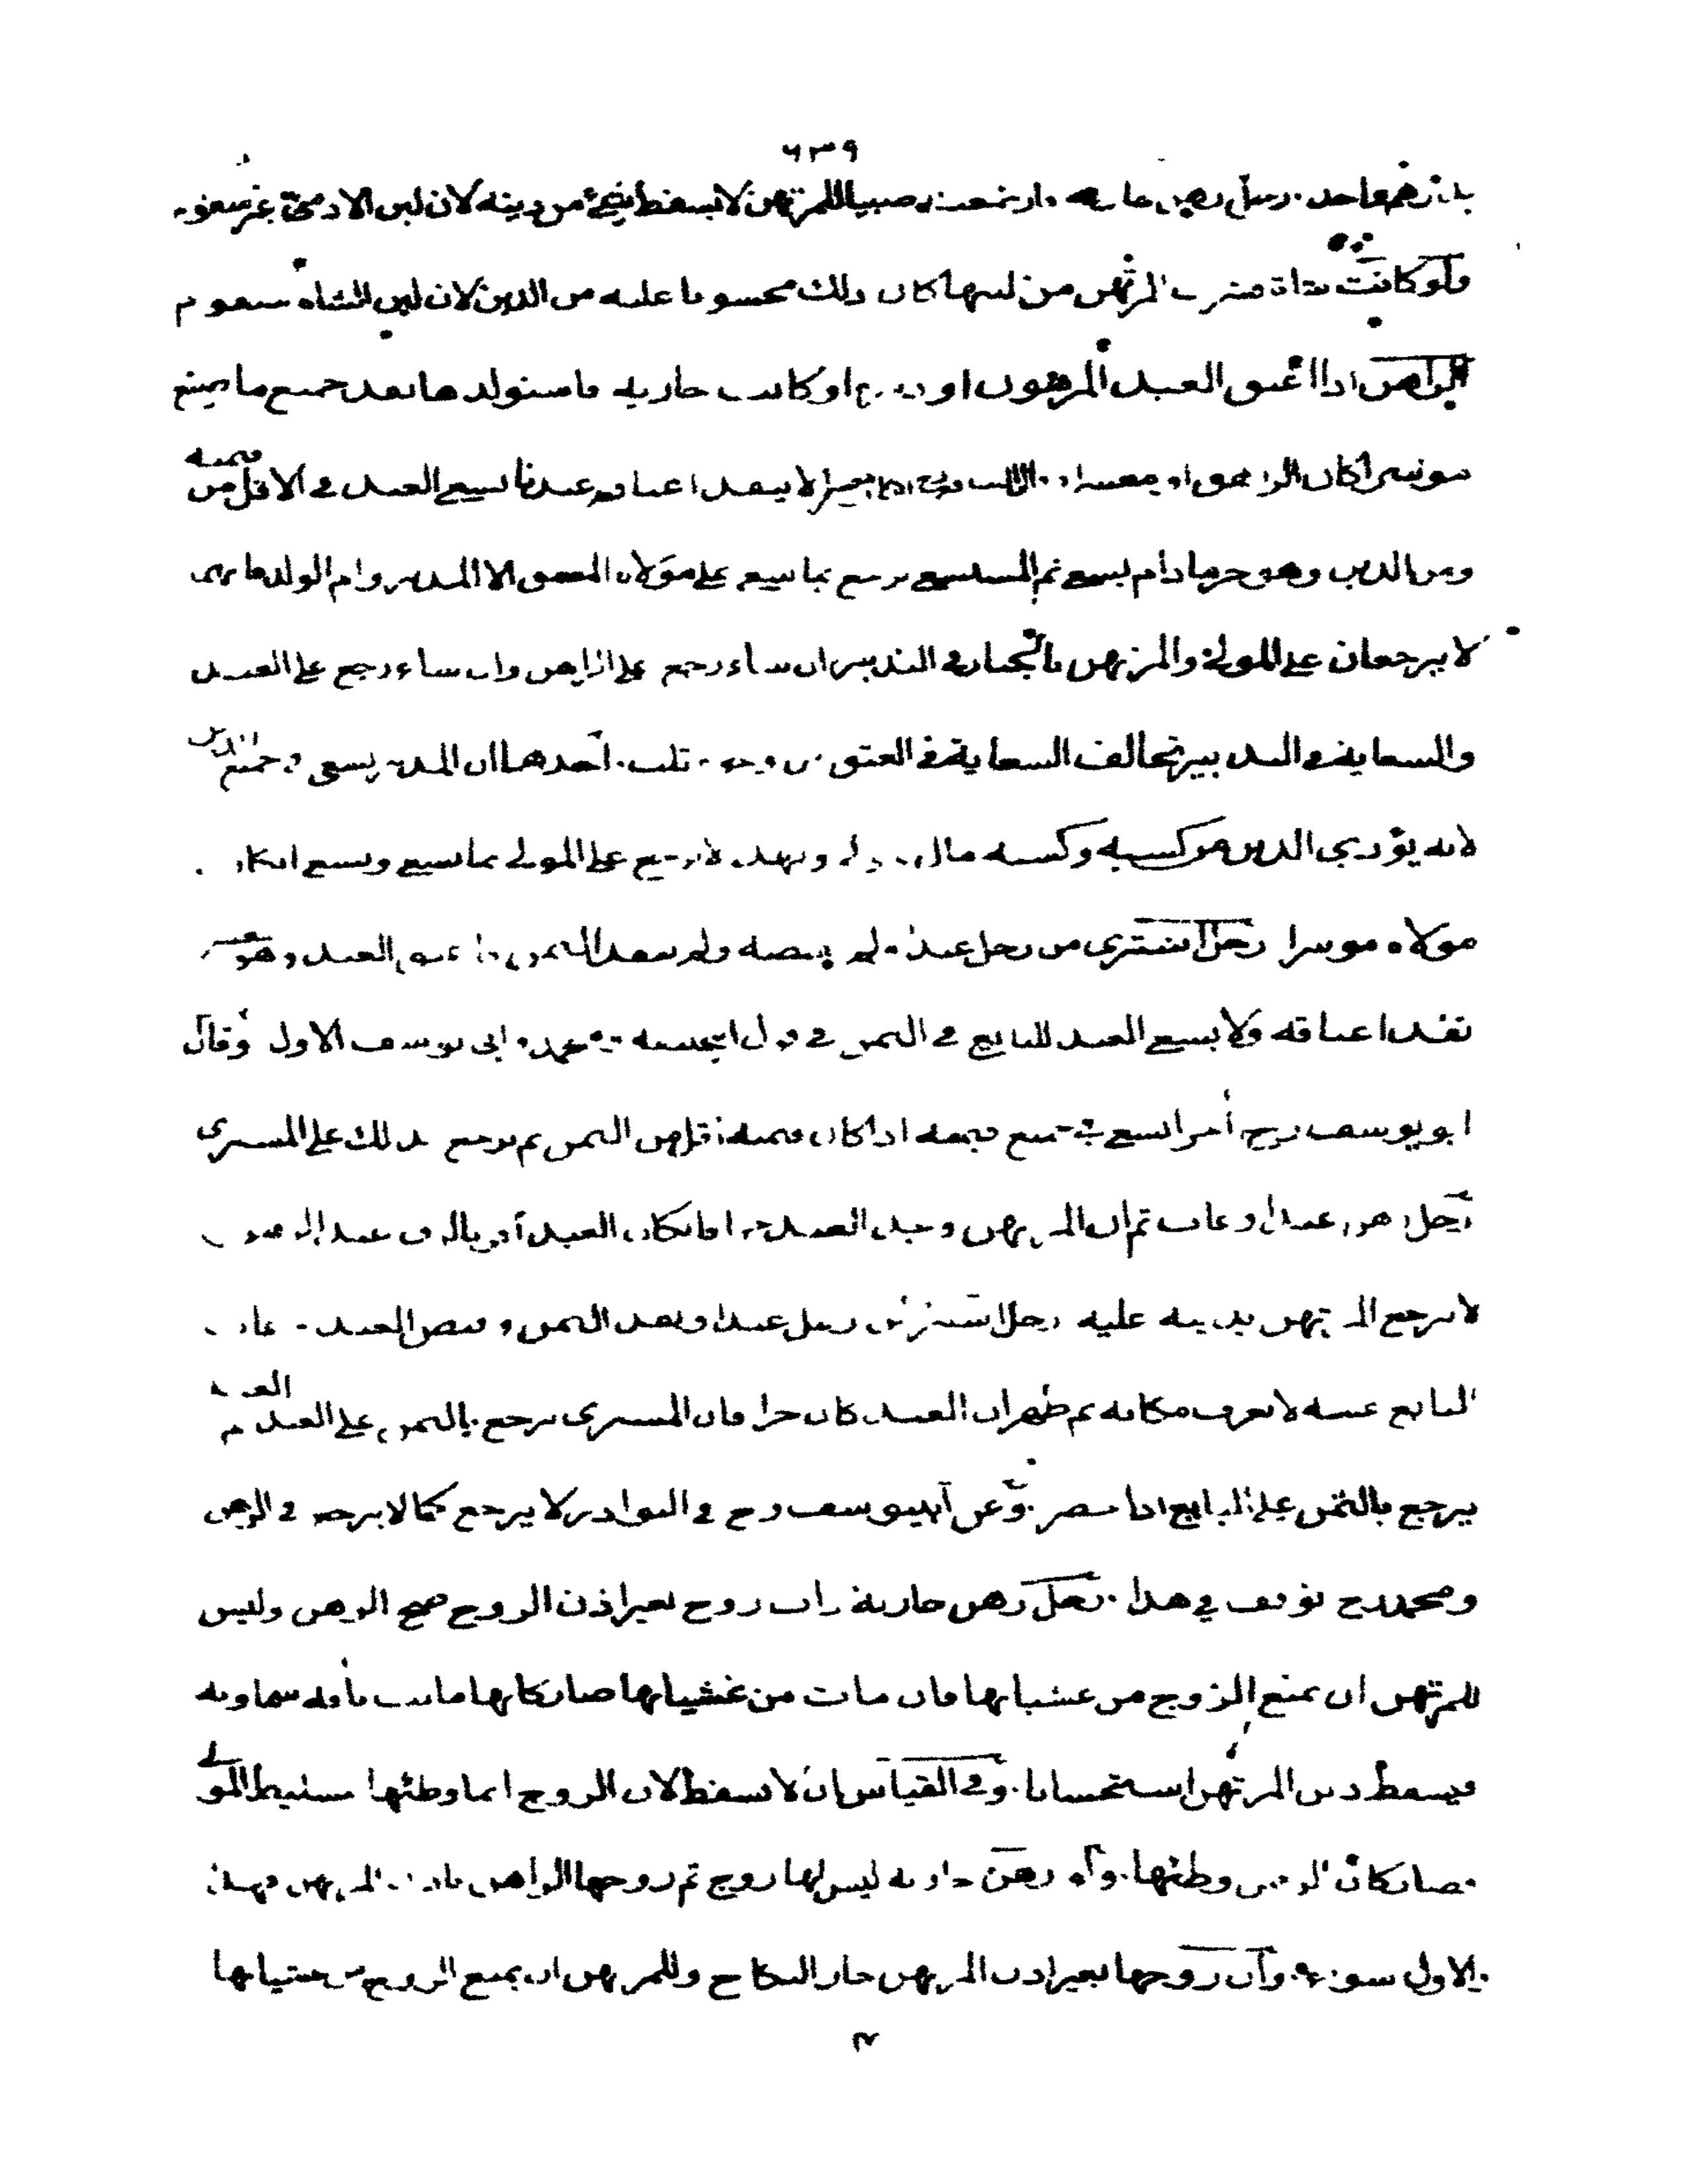 ٦٣٩
رجل رهن جارية فارضعت صبيا للمرتهن لا يسقط شيء من دينه لان لبن الادمي غير متقوم
ولو كانت شاة فشرب المرتهن من لبنها كان ذلك محسوبا عليه من الدين لان لبن الشاة متقوم
الراهن اذا اعتق العبد المرهون او او كانت جارية فاستولدها نفد جميع ما صنع
موسرا كان الراهن او معسرا وقال لا ينفد اعتاقه عندنا يسعى العبد في الاقل من قيمته
ومن الدين وهو حر ما دام يسعى ثم المستسعى يرجع بما يسعى على مولاه المعتق الا المدبر وام الولد فانهما
لا يرجعان على المولى والمرتهن بالخيار في التدبير ان شاء رجع على الراهن وان شاء رجع على العبد
والسعاية في التدبير تخالف السعاية في العتق من وجوه ثلث احدها ان المدبر يسعى في جميع الدين
لانه يؤدي الدين من كسبه وكسبه مال ولهذا لا يرجع على المولى بما يسعى ويسعى
مولاه موسرا رجل اشترى من رجل عبدا ولم يقبضه ولم ينقد الثمن العبد وهو
نفد اعتاقه ولا يسعى العبد للبايع في الثمن في قول ابيحنيفة ومحمد وابي يوسف الاول وقال
ابو يوسف رح يسعى في جميع قيمته اذا كان قيمته اقل من الثمن ثم يرجع بذلك على المشتري
رجل رهن عبدا وغاب ثم ان المرتهن وجد العبد حرا فان كان العبد اقر بالرق عند الرهن
لا يرجع المرتهن بدينه عليه رجل اشترى من رجل عبدا ونقد الثمن وقبض العبد وغاب
البايع غيبة لا يعرف مكانه ثم ظهر ان العبد كان حرا فان المشتري يرجع بالثمن على العبد ثم العبد
يرجع بالثمن على البايع اذا حضر وعن ابييوسف رح في النوادر لا يرجع كما لا يرجع في الرهن
ومحمد رح توقف في هذا رجل رهن جارية ذات زوج بغير اذن الزوج صح الرهن وليس
للمرتهن ان يمنع الزوج من غشيانها فان ماتت من غشيانها صار كانها ماتت بافة سماوية
فيسقط دين المرتهن استحسانا وفي القياس ان لا يسقط لان الزوج انما وطئها بتسليط المولى
فصار كان الراهن وطئها ولو رهن جارية ليس لها زوج ثم زوجها الراهن باذن المرتهن فهذا
والاولى سواء وان زوجها بغير اذن المرتهن جاز النكاح وللمرتهن ان يمنع الزوج من غشيانها